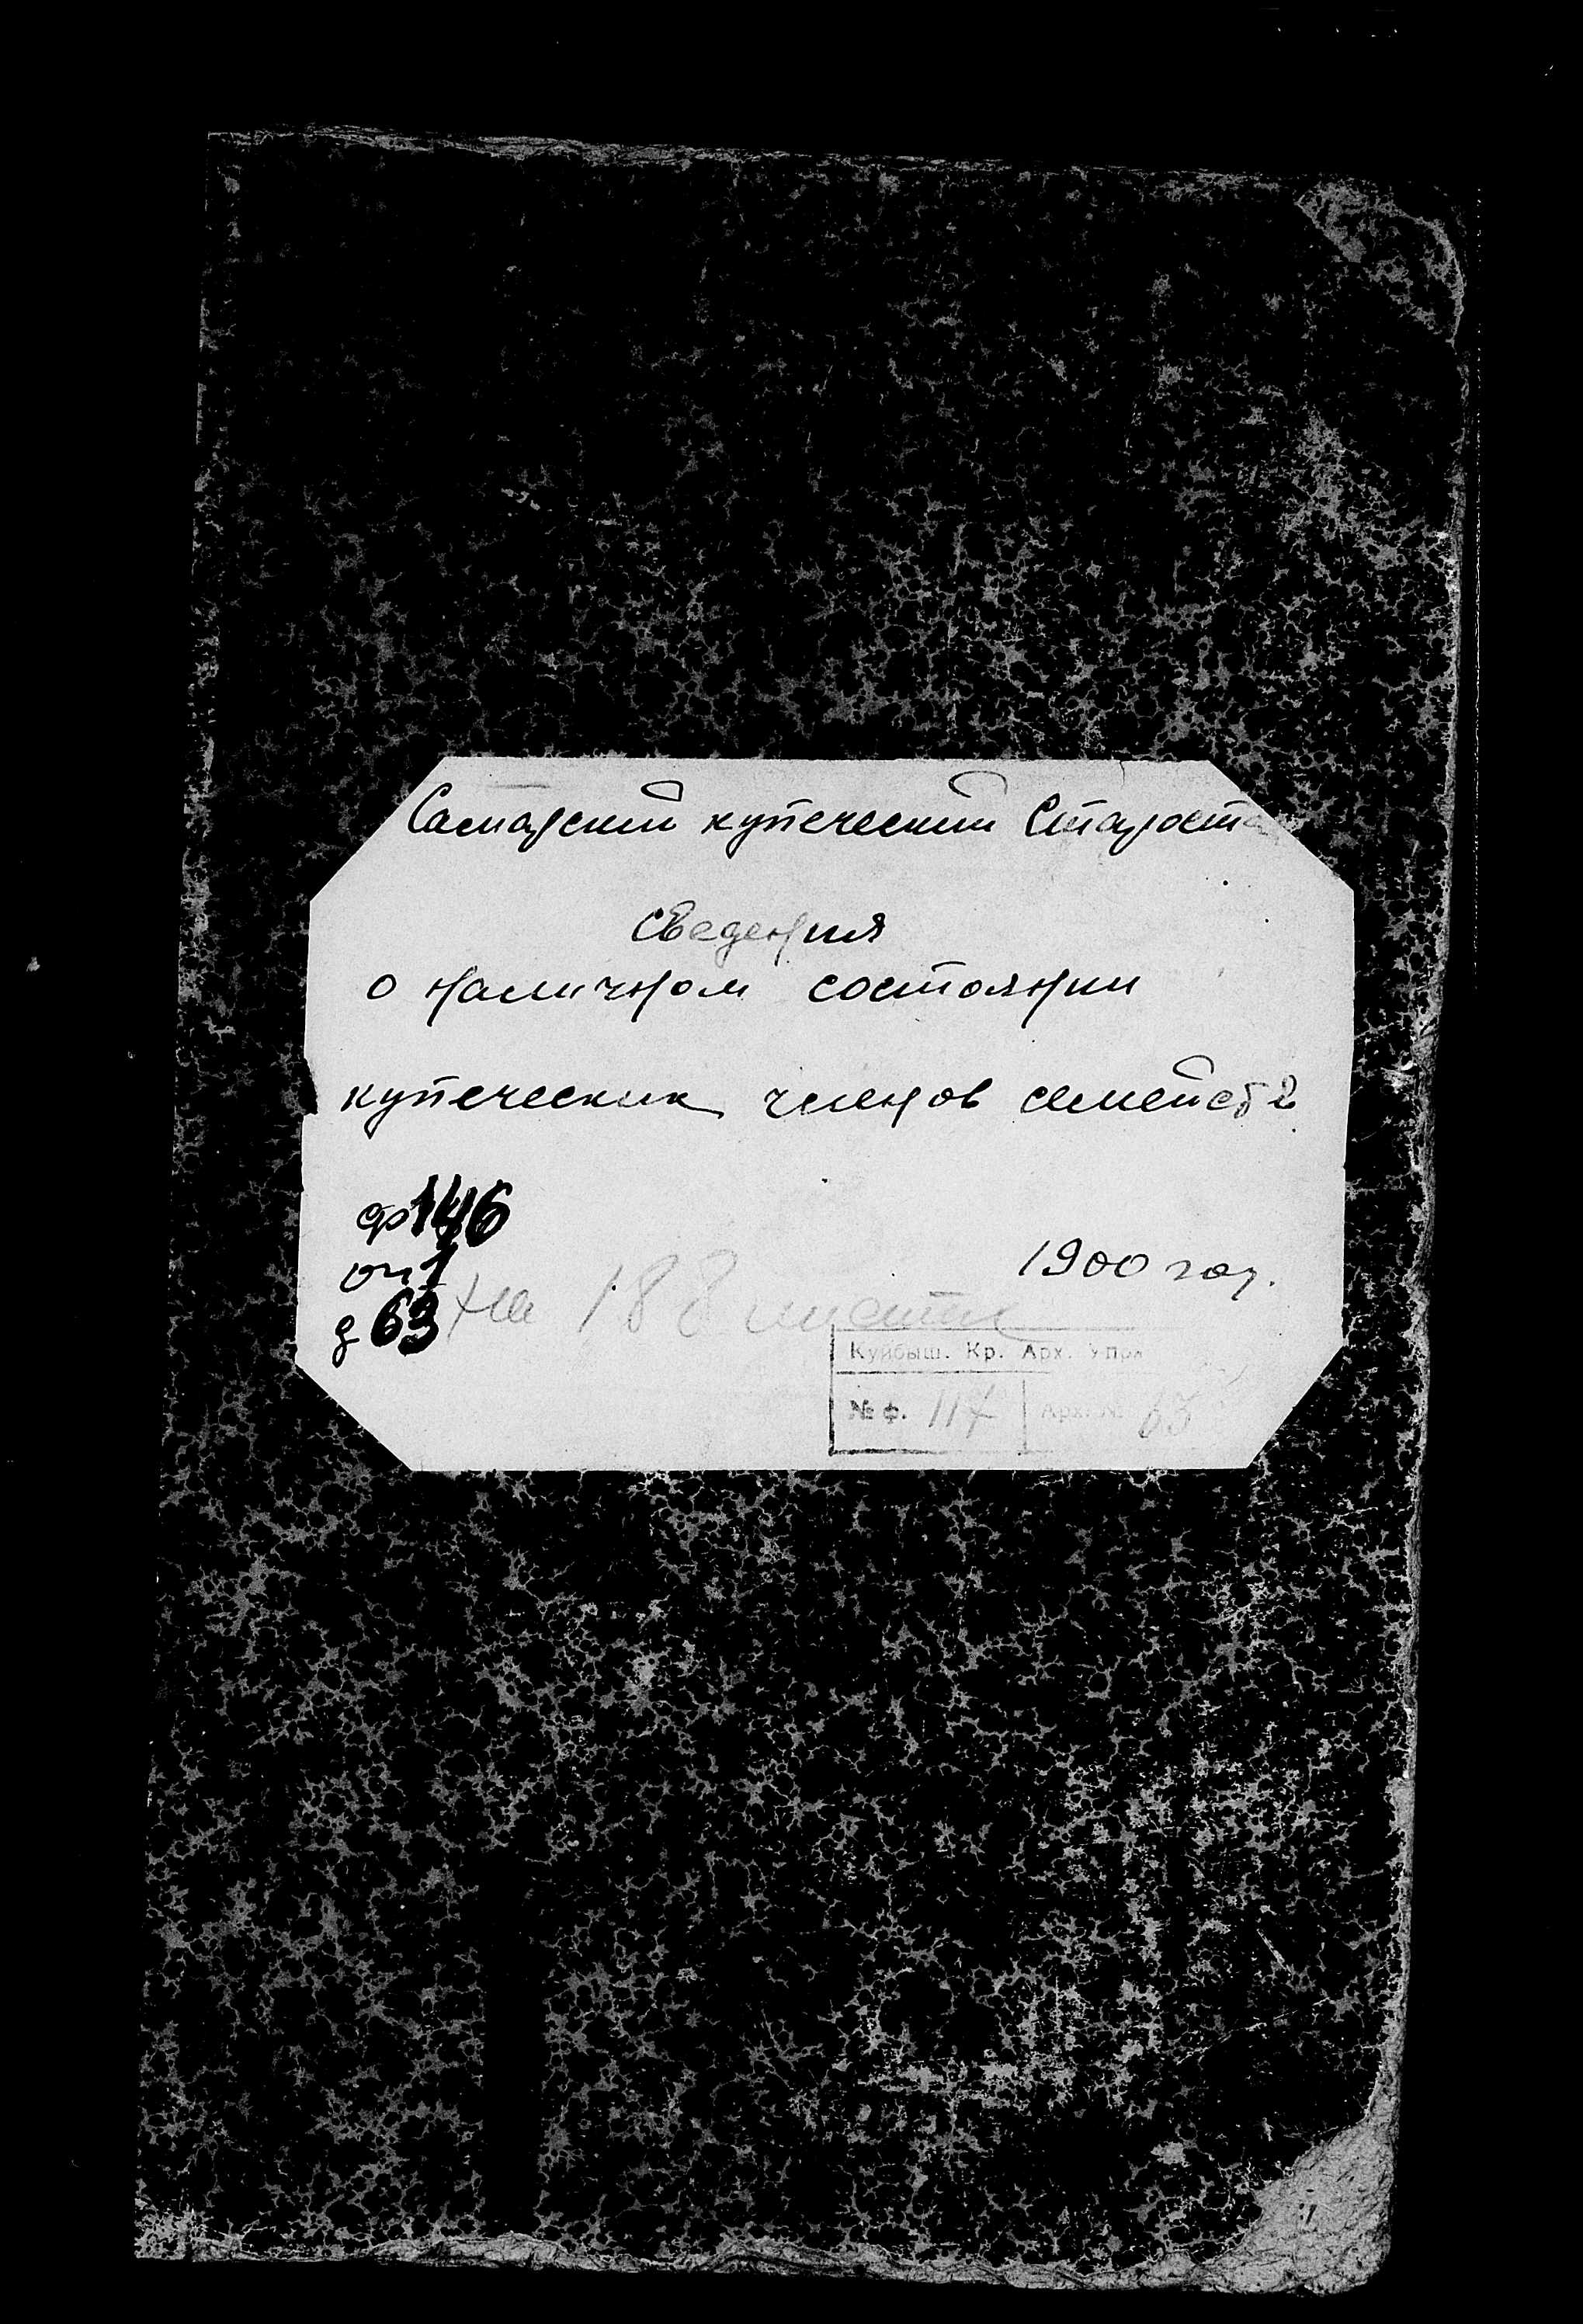 Самарский купеческий Староста
сведения
о наличном состоянии
купеческих членов семейств
ф 146
оп 1
д 63
1900 год.
на 188 листах
Куйбыш. Кр. Арх. Упр.
№ ф. 117 Арх. № 63